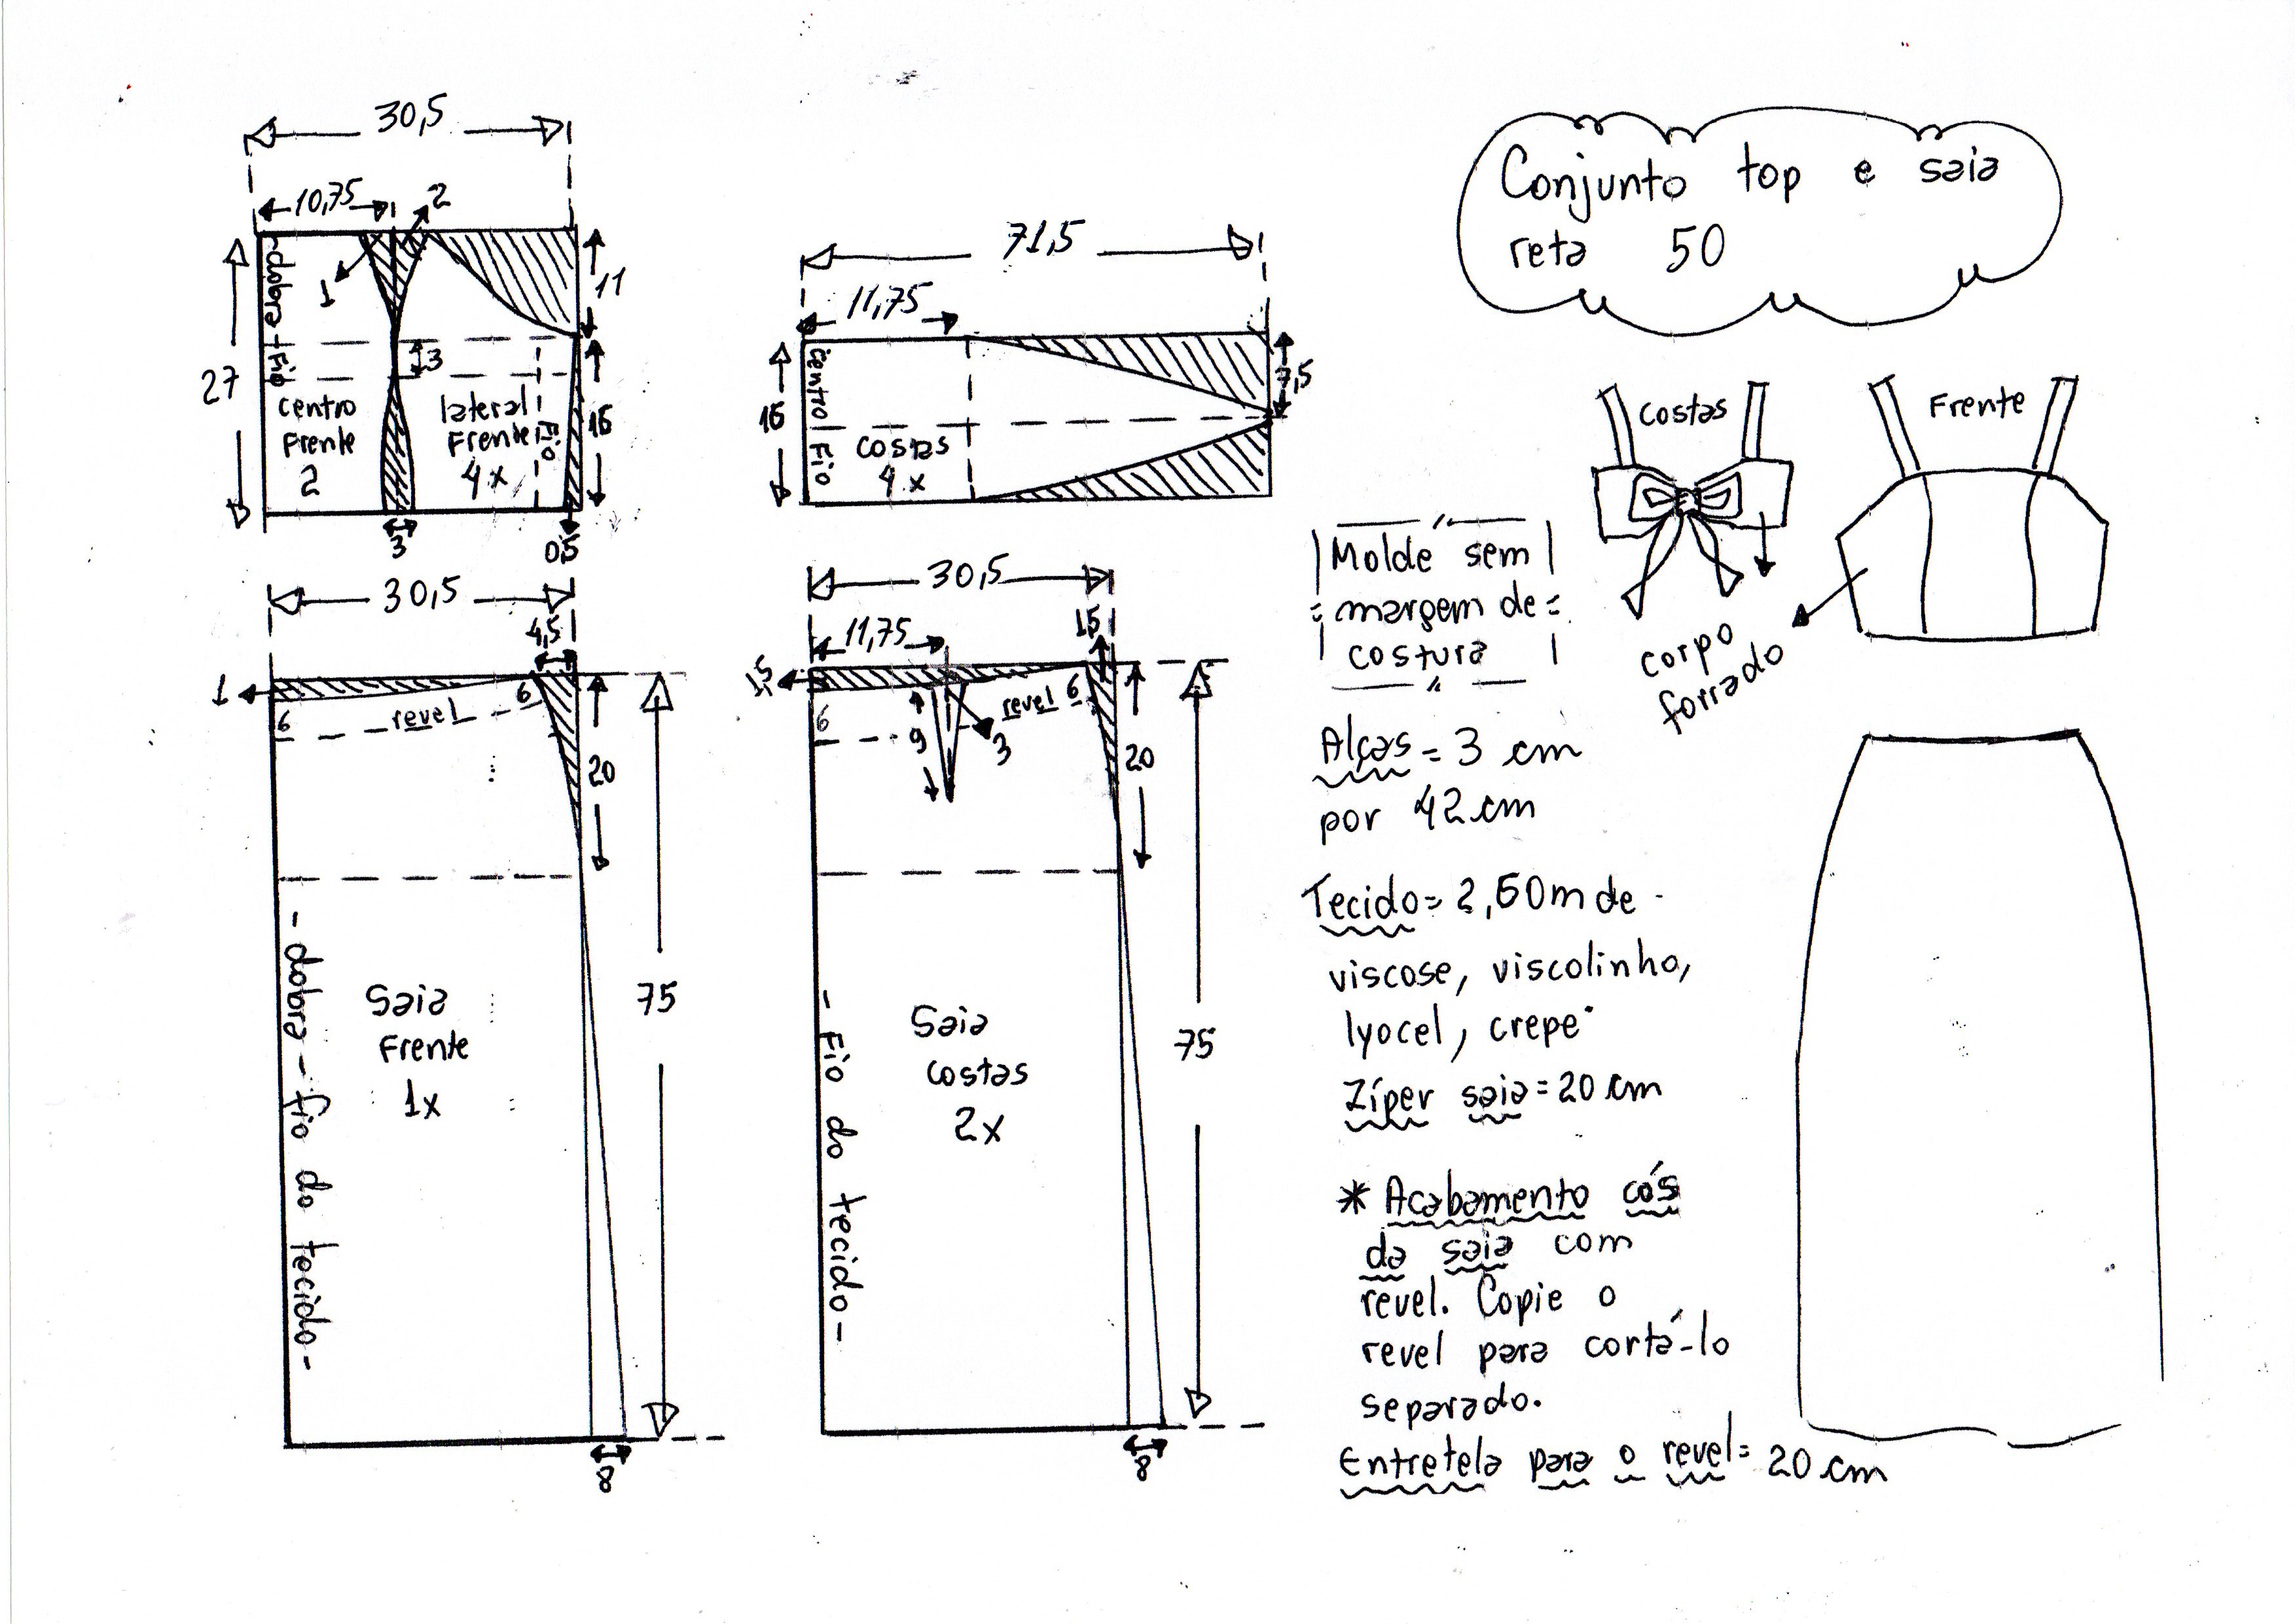 Conjunto top e saia
reta 50
30,5
10,75
2
1
dobra - fio
27
11
3
16
centro
Frente
2
lateral
Frente
4x
Fio
3
0,5
71,5
11,75
centro
Fio
16
costas
4x
7,5
30,5
4,5
1
6
revel
6
20
75
- dobra - fio do tecido -
Saia
Frente
1x
8
30,5
11,75
1,5
1,5
6
9
3
revel
6
20
75
- Fio do tecido -
Saia
costas
2x
8
Costas
Frente
corpo
forrado
Molde sem
margem de
costura
Alças = 3 cm
por 42 cm
Tecido = 2,50m de
viscose, viscolinho,
lyocel, crepe
Zíper saia = 20 cm
* Acabamento cós
da saia com
revel. Copie o
revel para cortá-lo
separado.
Entretela para o revel = 20 cm